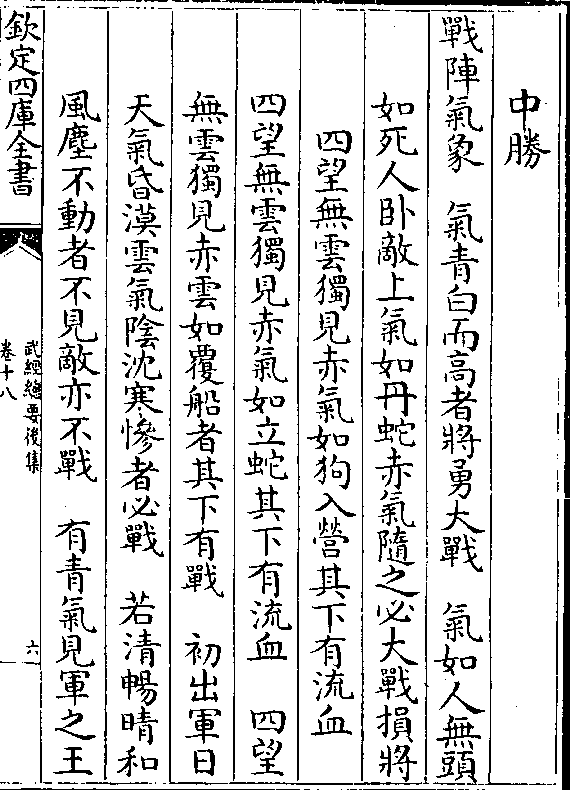 中勝
戰陣氣象　氣青白而高者將勇大戰　氣如人無頭
如死人卧敵上氣如丹蛇赤氣隨之必大戰損將
四望無雲獨見赤氣如狗入營其下有流血
四望無雲獨見赤氣如立蛇其下有流血　四望
無雲獨見赤雲如覆船者其下有戰　初出軍日
天氣昏漠雲氣陰沈寒慘者必戰　若清暢晴和
風塵不動者不見敵亦不戰　有青氣見軍之王
欽定四庫全書
武經總要後集
卷十八
六